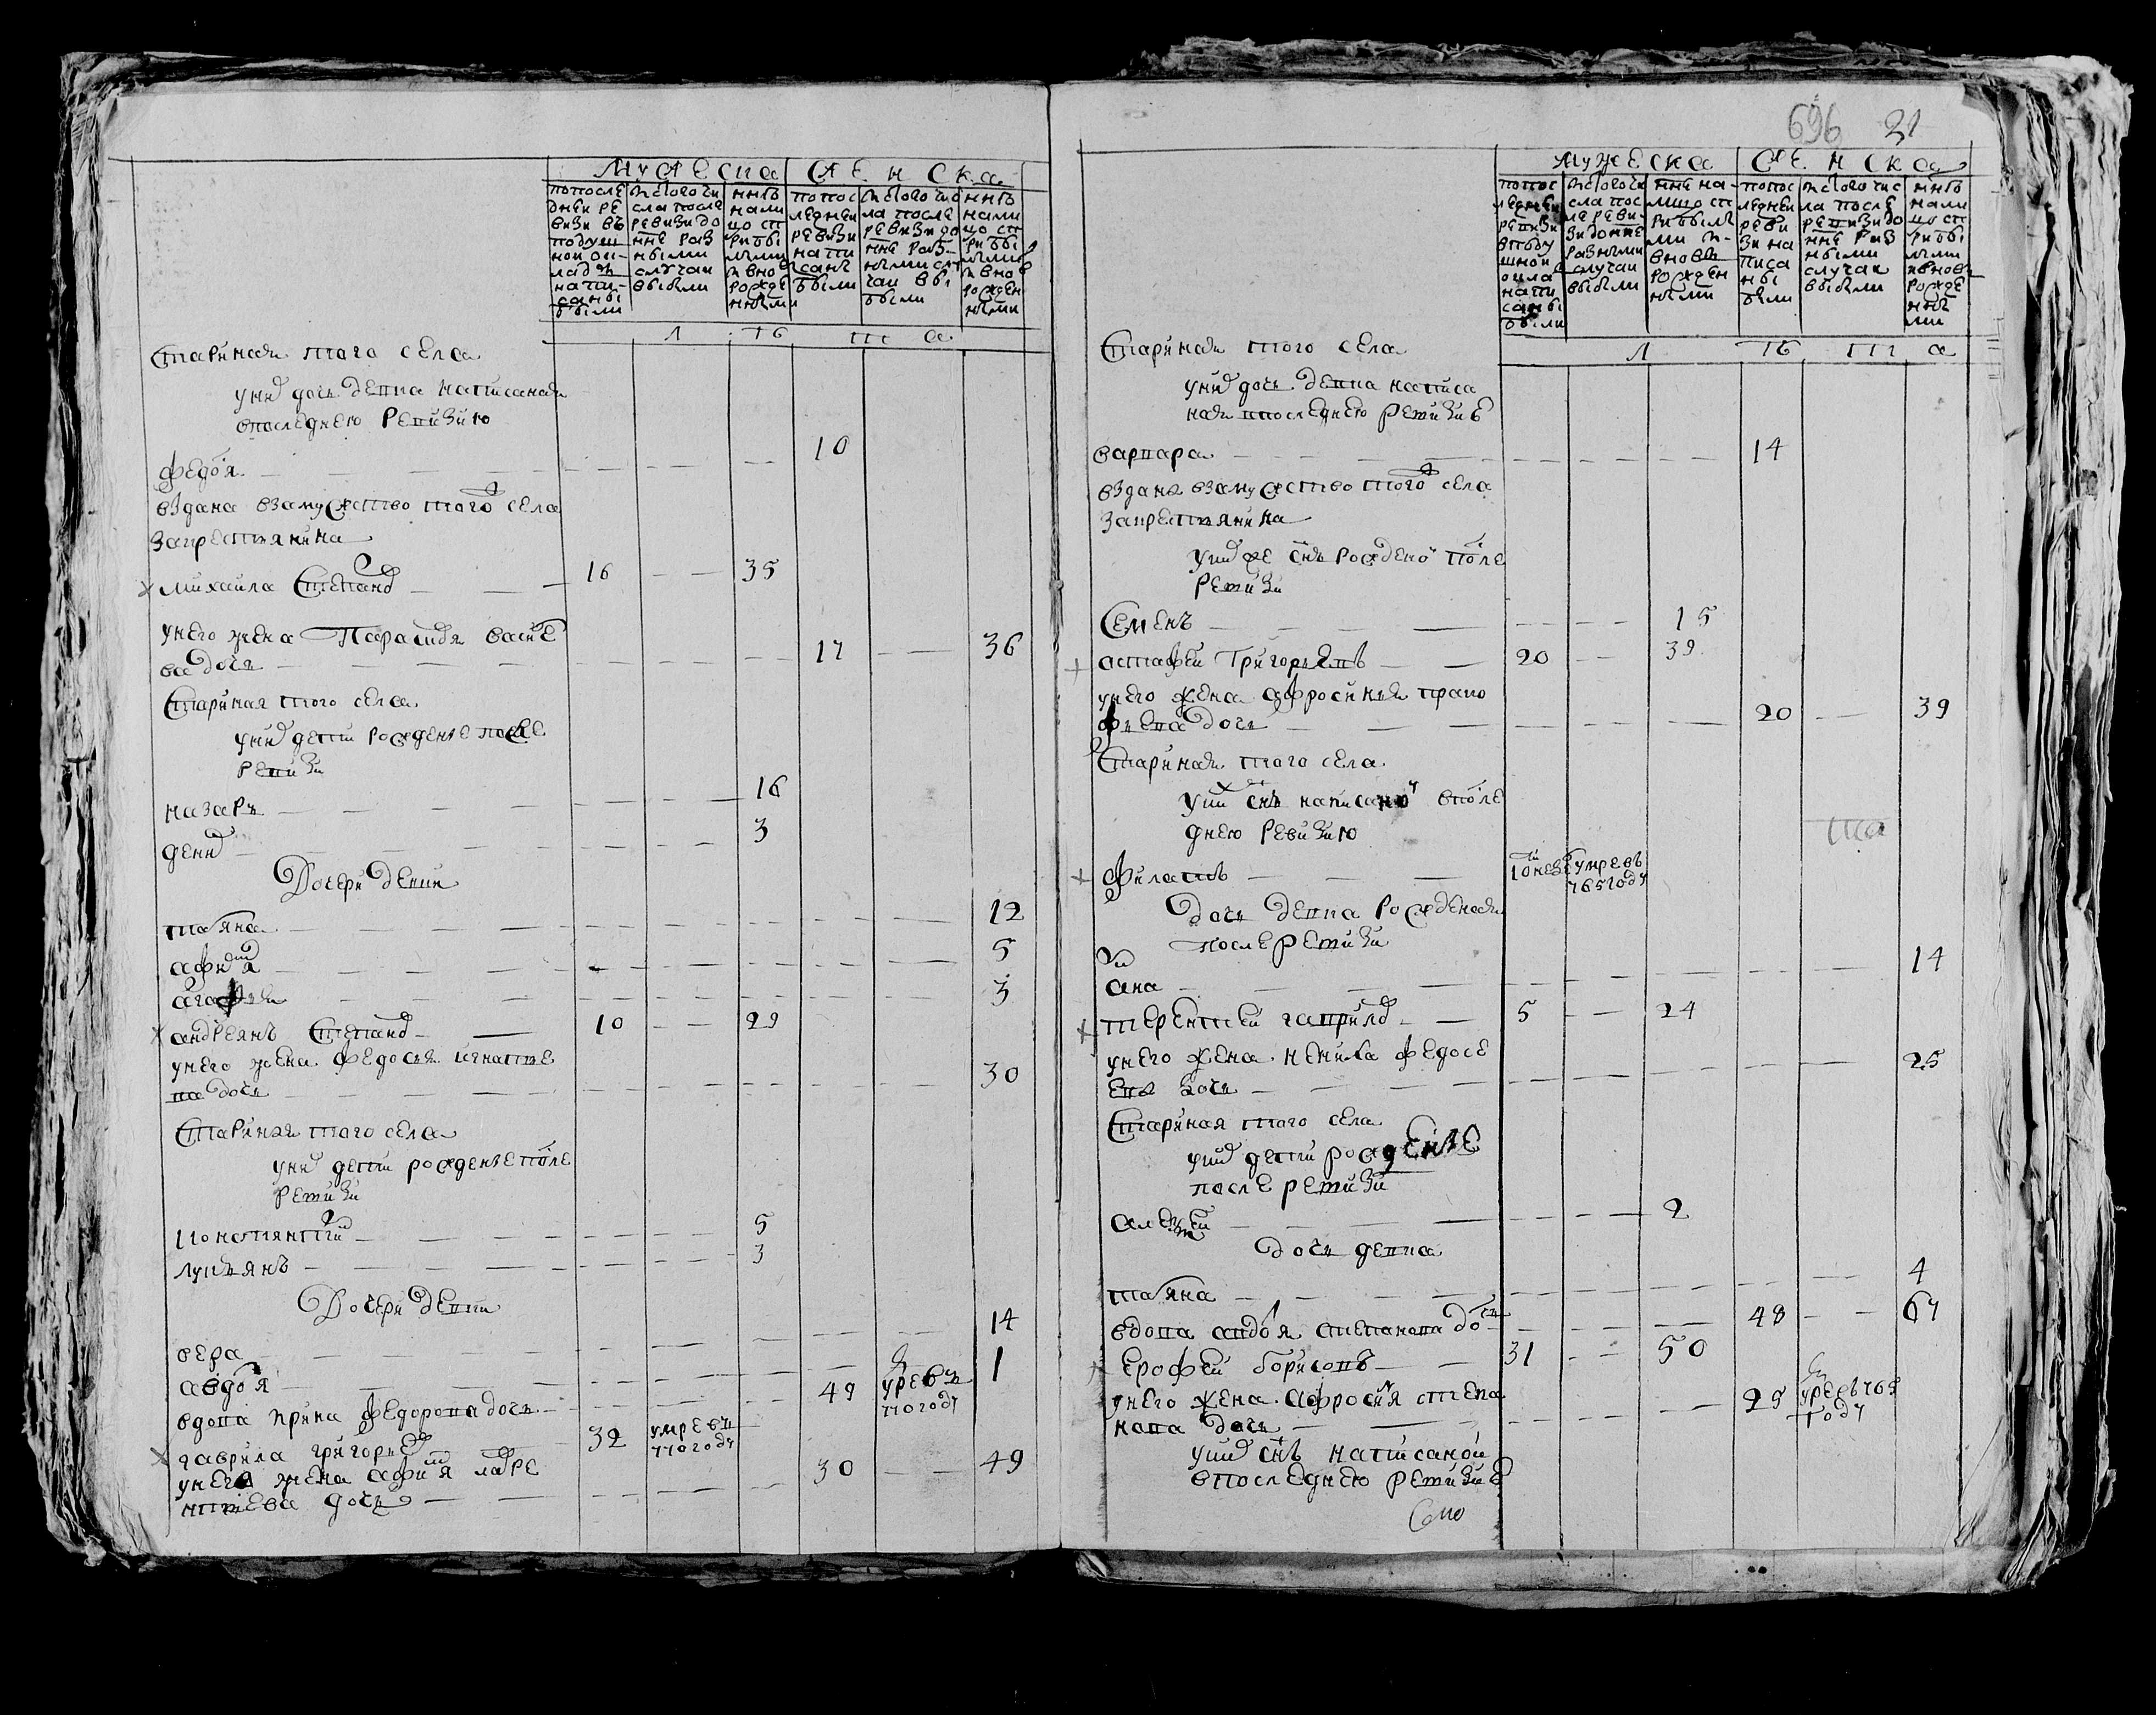 Мужеска Женска
попосле дней ре визи въ подуш ной ок ладъ написаны были
ис того чи сла после ревизи до ныне раз ными случаи выбыли
ныне нали цо с при былыми и вновь рожде ными
попос ледней ревизи напи саны были
ис того чис ла после ревизи до ныне раз ными слу чаи вы были
ныне нали цо с при былыми и вновь рожден ными
Л ѣ т а
Старинная того села
у них дочь девка написаная
в последнею ревизию
Федося 10
выдана взамужство того села
за крестьянина
Михаила Степанов 16 35
у него жена Парасковья Василье
ва дочь 17 36
Старинная того села
у них дети рожденые после
ревизи
Назаръ 16
Денис 3
Дочери девки
Татьяна 12
Афимья 5
Агафья 3
Андреянъ Степанов 10 29
у него жена Федосья Игнатье
ва дочь 30
Старинная того села
у них дети рожденые после
ревизи
Константин 5
Лукьянъ 3
Дочери девки
Вера 14
Авдотья 1
вдова Ирина Федорова дочь 49 умре въ 770 году
Гаврила Григорьев 32 умре въ 770 году
у него жена Афимья Лавре
нтиева дочь 30 49
696 21
Мужеска Женска
попос ледней ревизи в поду шной оклад напи саны были
ис того чи сла пос ле реви зи до ныне разными случаи выбыли
ныне на лицо с прибылы ми и вновь рожден ными
попос ледней реви зи на писа ны были
ис того чис ла после ревизи до ныне раз ными случаи выбыли
ныне нали цо с прибы лыми и вновь рожде ны ми
Л ѣ т а
Старинная того села
у них дочь девка написа
ная в последнею ревизию
Варвара 14
выдана взамужство того села
за крестьянина
у них же сынъ рожденой после
ревизи
Семенъ 15
Астафей Григорьевъ 20 39
у него жена Афросинья Проко
фьева дочь 20 39
Старинная того села
у них сынъ написаной в после
днею ревизию
Филатъ 10 недель умре въ 765 году
Дочь девка рожденая
после ревизи
Анна 14
Терентей Гаврилов 5 24
у него жена Ненила Федосе
ева дочь 25
Старинная того села
у них дети рожденые
после ревизи
Алексей 2
дочь девка
Татьяна 4
вдова Авдотья Степанова дочь 48 67
Ерофей Борисовъ 31 50
у него жена Афросинья Степа
нова дочь 25 умре въ 765 году
у них сынъ написаной
в последнею ревизию